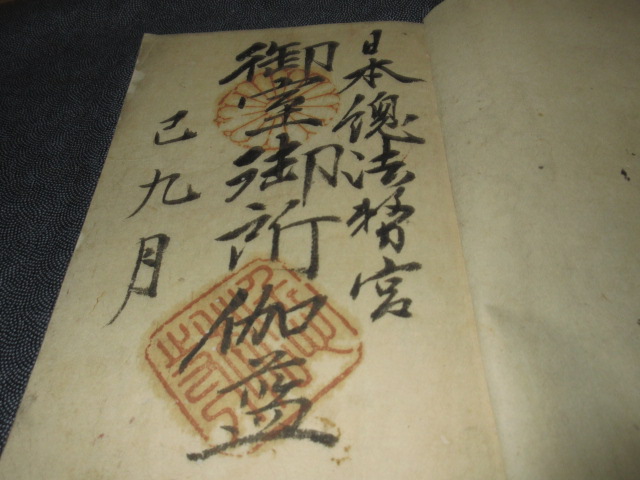 日本總法務宮
御室御所
伽藍
巳九月